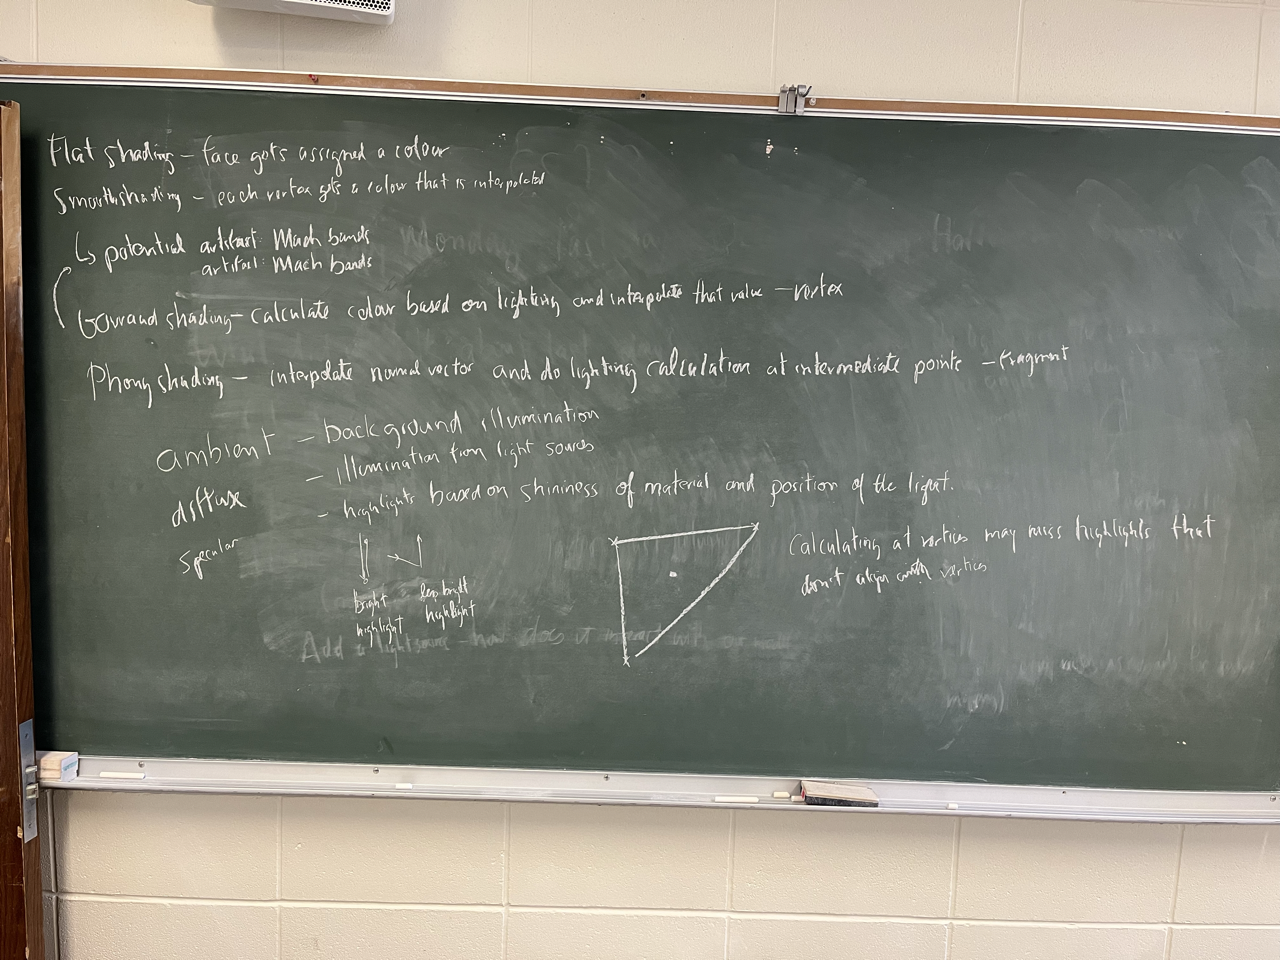 Flat shading - face gets assigned a colour
Smooth shading - each vertex gets a colour that is interpolated
↳ potential artifact: Mach bands
artifact: Mach bands
Gouraud shading - calculate colour based on lighting and interpolate that value - vertex
Phong shading - interpolate normal vector and do lighting calculation at intermediate points - fragment
ambient - background illumination
diffuse - illumination from light sources
specular - highlights based on shininess of material and position of the light.
bright highlight
less bright highlight
Calculating at vertices may miss highlights that
don't align with vertices
Monday
Add a light source - how does it interact with